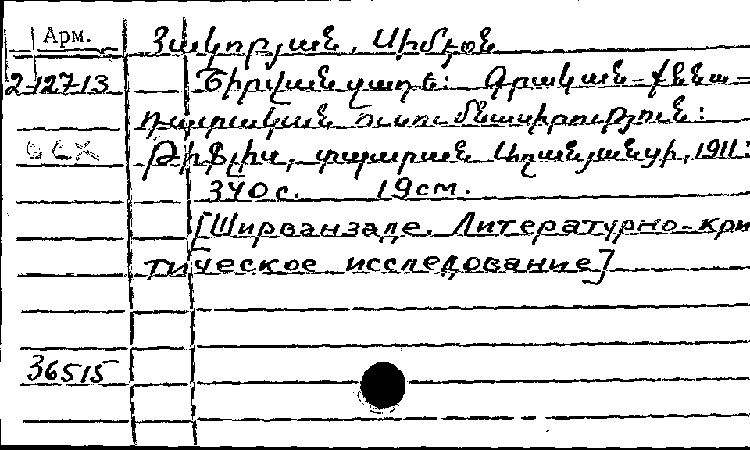 Арм.
Յակոբյան, Սիմէօն
2-12713
Շիրվանզադե: Գրական-քննա-
դատական ուսումնասիրություն:
Թիֆլիս, տպարան Աղանյանցի, 1911:
340с. 19см.
[Ширванзаде. Литературно-кри
тическое исследование]
36515